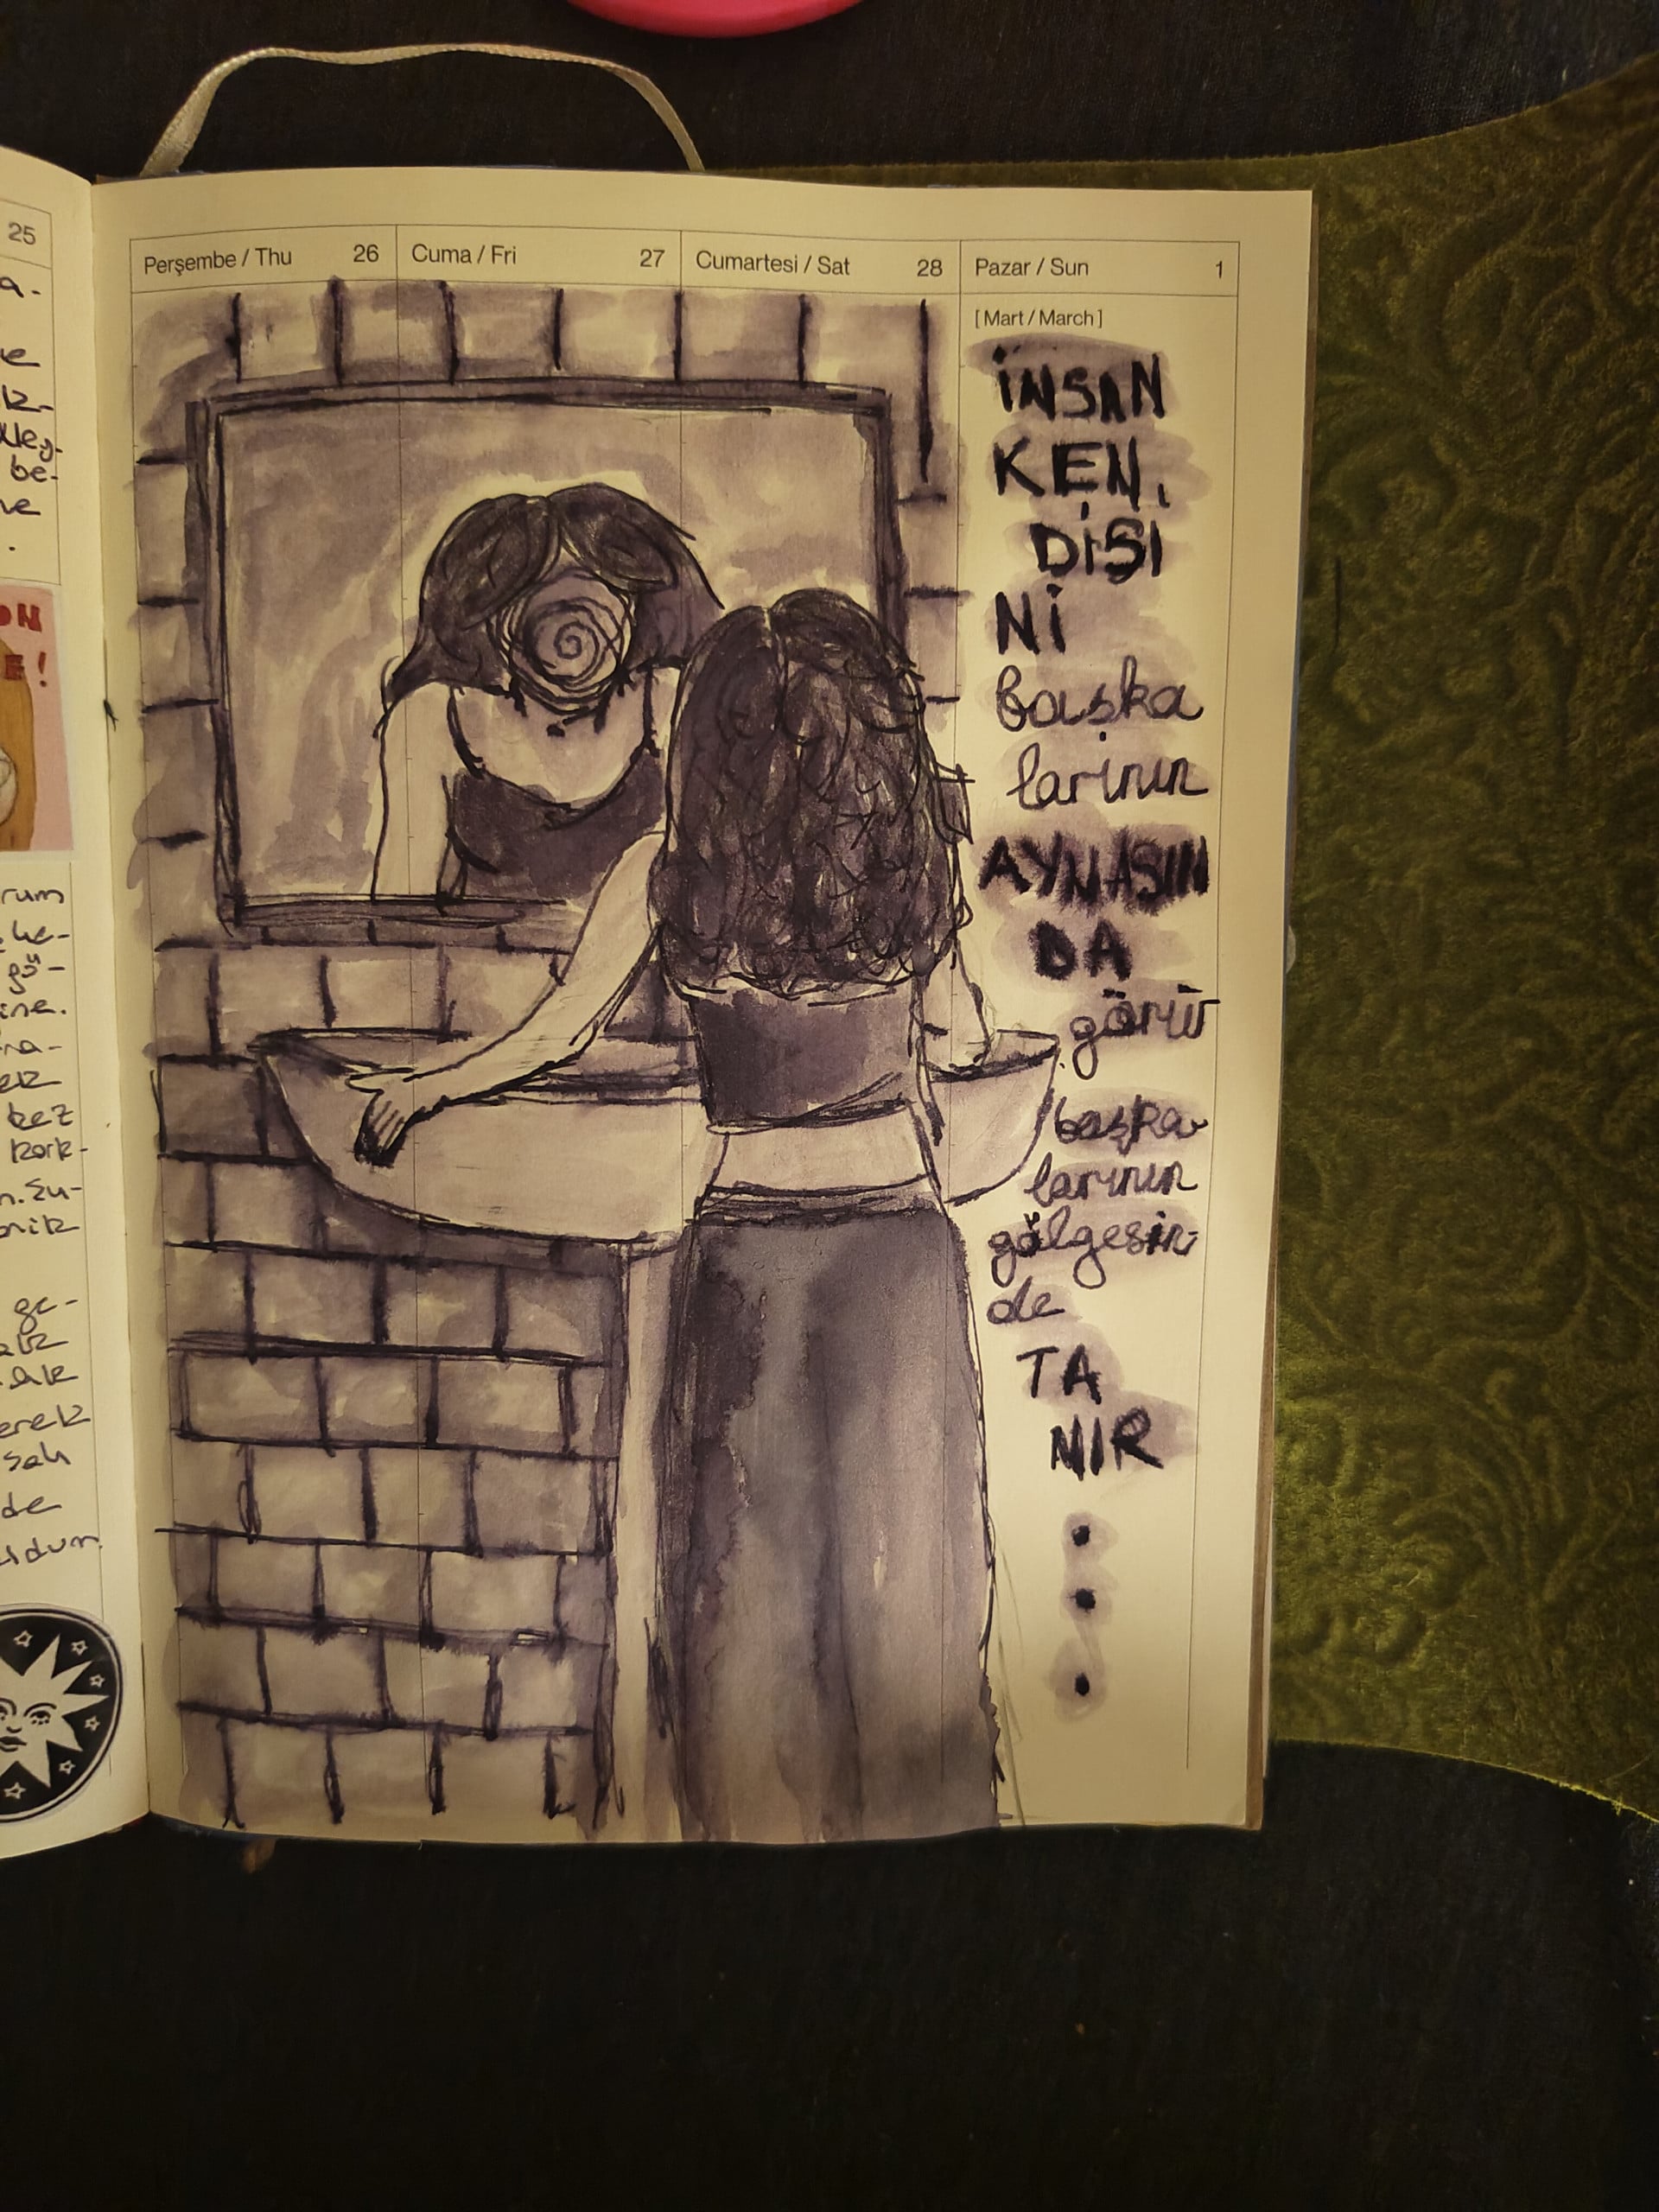 25
a-
e
be-
.
ON
E!
rum
gö-
ine.
ra-
ek
bez
kork-
n. Su-
ge-
erek
de
Perşembe / Thu 26 Cuma / Fri 27 Cumartesi / Sat 28 Pazar / Sun 1
[ Mart / March ]
İNSAN
KEN,
DİSİ
Nİ
başka
larının
AYNASIN
DA
görür
başka-
larının
gölgesin-
de
TA
NIR
.
.
.